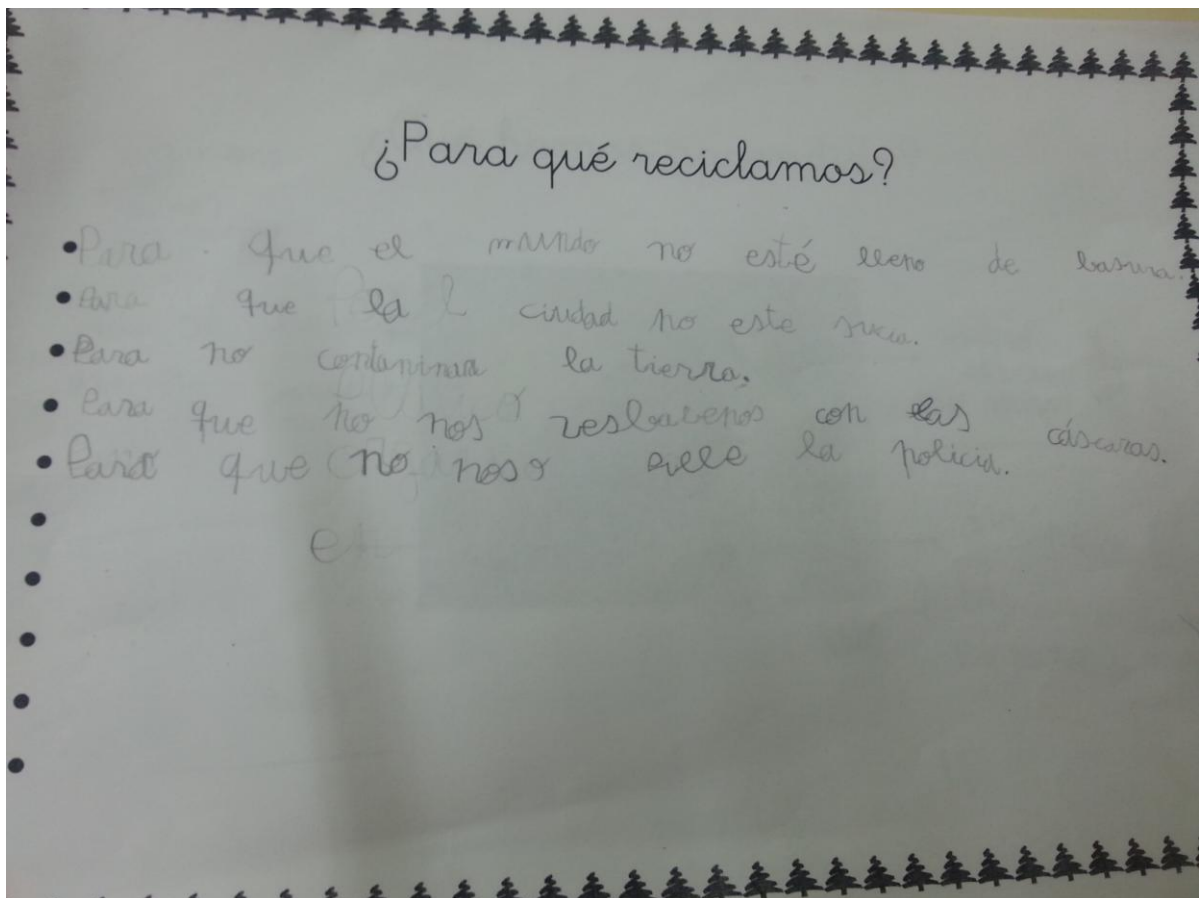 ¿Para qué reciclamos?
• Para que el mundo no esté lleno de basura.
• Para que la ciudad no este sucia.
• Para no contaminar la tierra.
• Para que no nos resbalemos con las cáscaras.
• Para que no nos la policia.